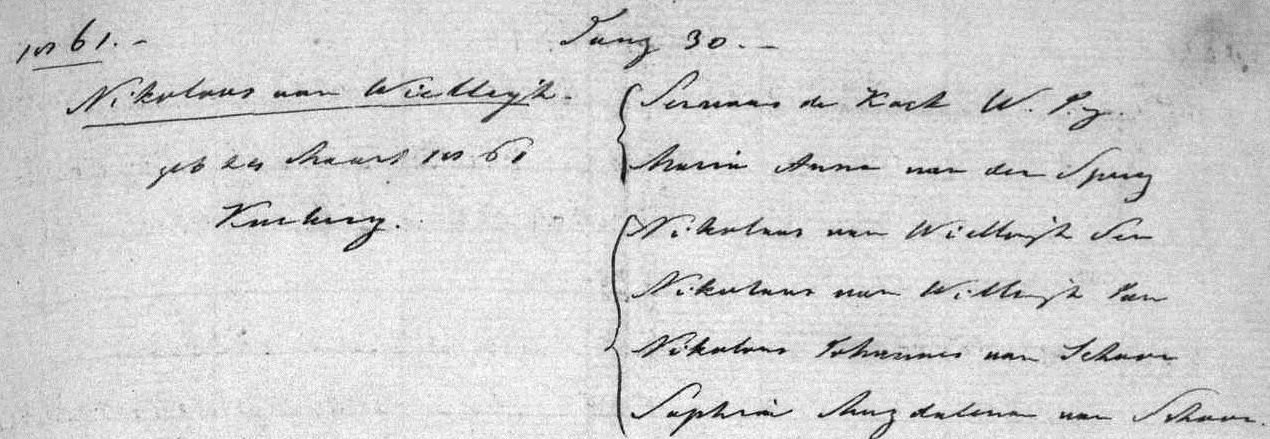 1861.- Juny 30.-
Nikolaas van Wiellegh.
geb Maart 1861
Servaas de Kock W. Sz.
Maria Anna van der Spuy
Nikolaas van Wielligh Sen
Nikolaas van Wielligh Jun
Nikolaas Johannes van Schoor
Sophia Magdalena van Schoor.